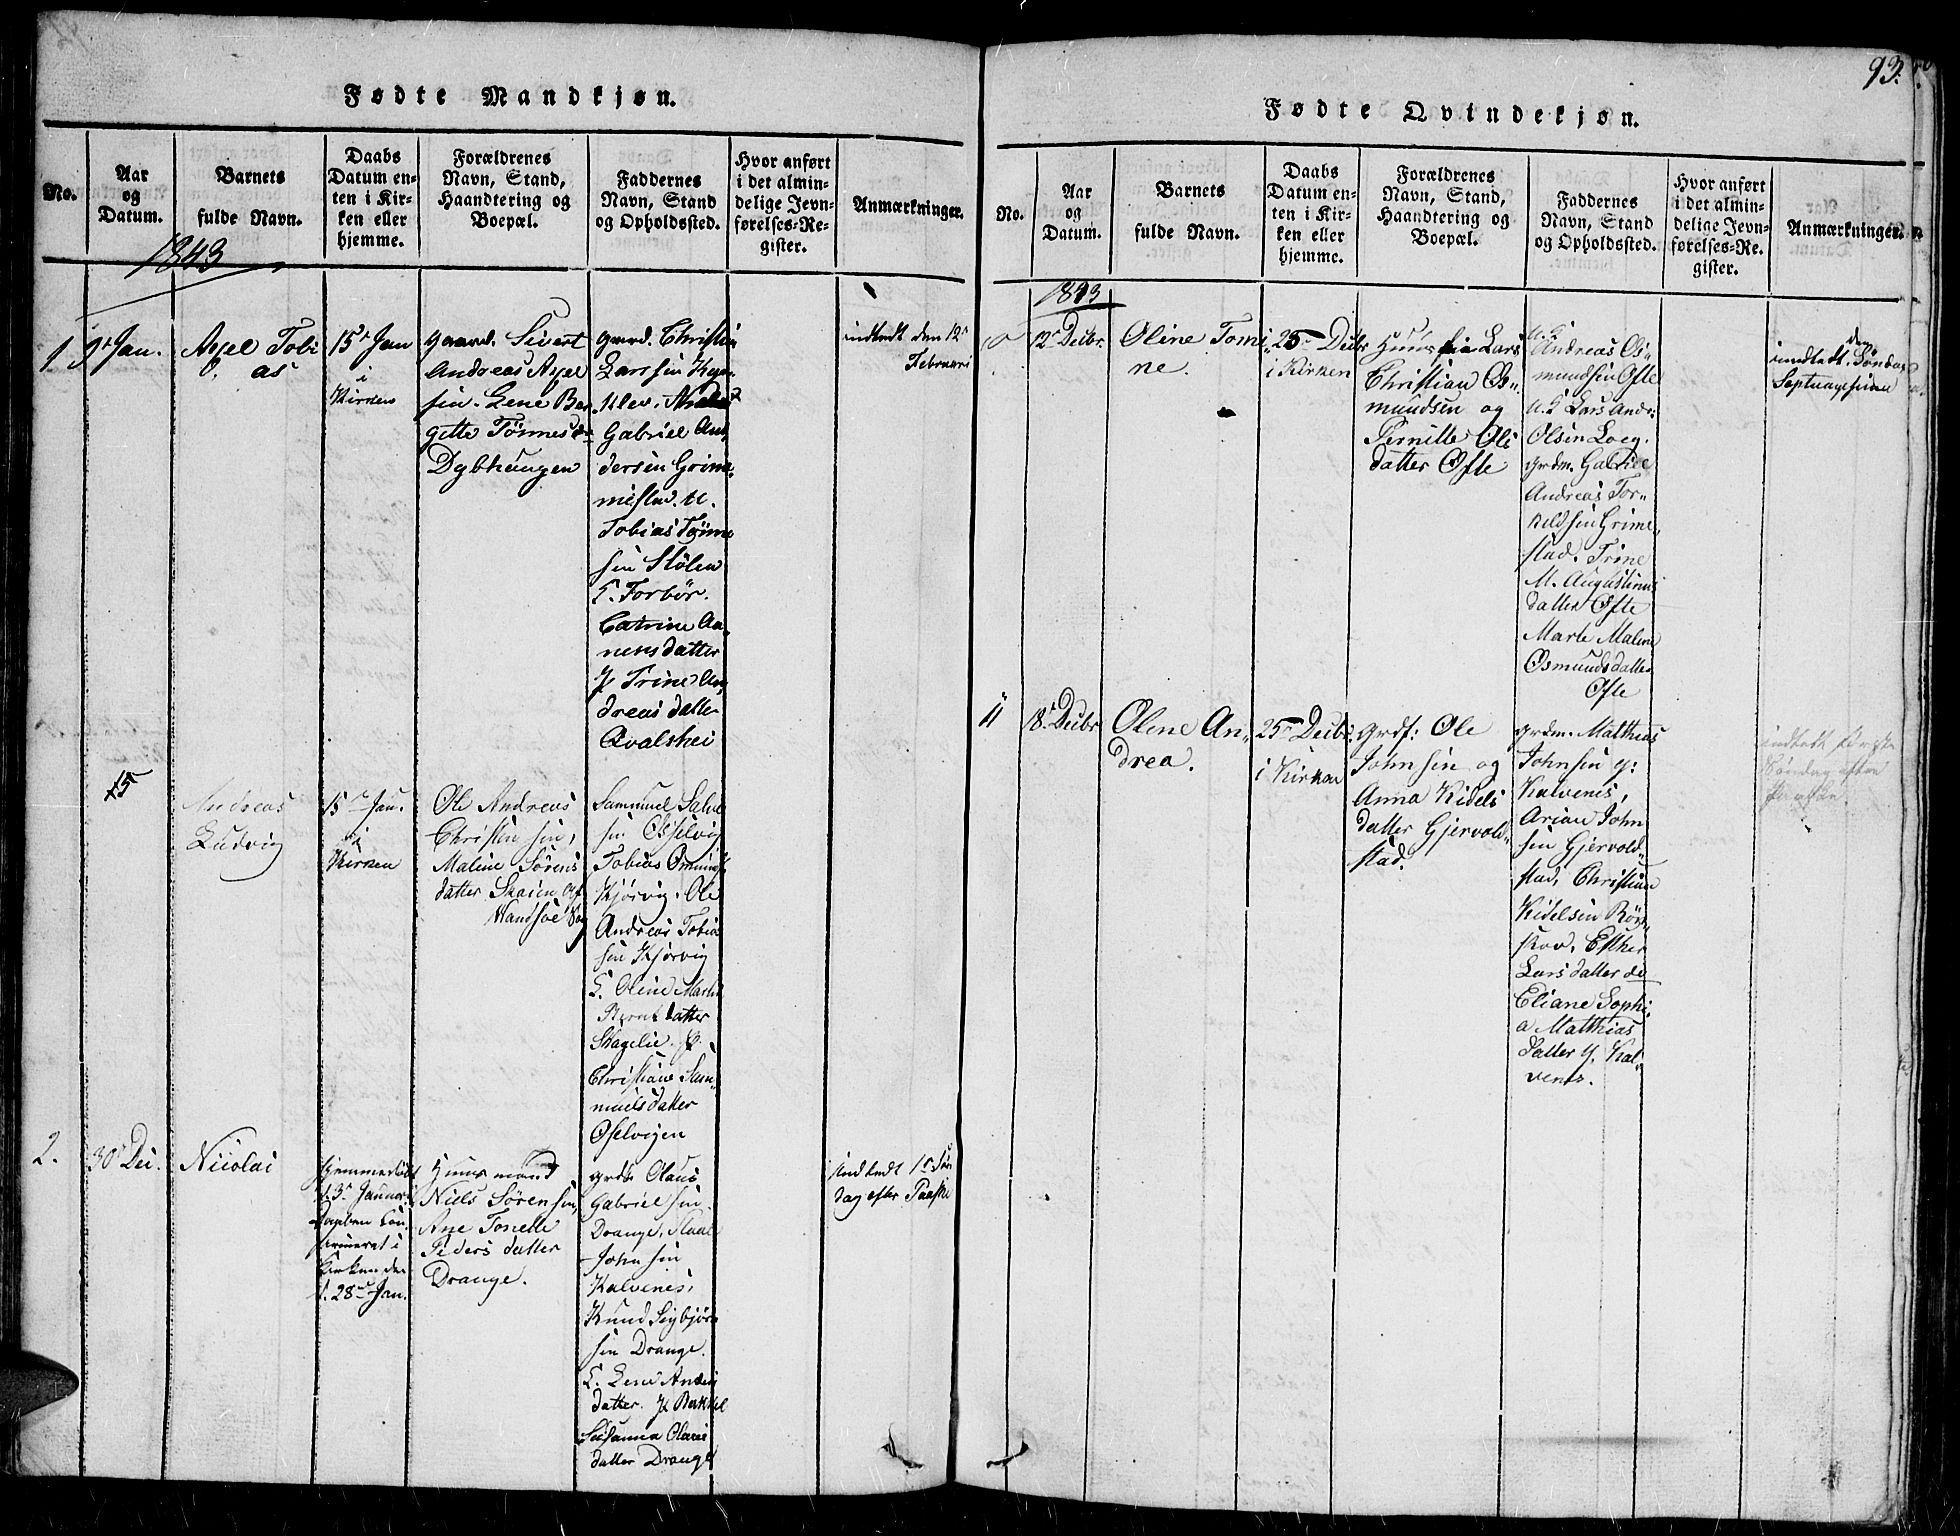 Fødte Mandkjøn.
No.
Aar
og
Datum.
Barnets
fulde Navn.
Daabs
Datum en-
ten i Kir-
ken eller
hjemme.
Forældrenes
Navn, Stand,
Haandtering og
Boepæl.
Faddernes
Navn, Stand
og Opholdssted.
Hvor anført
i det almin-
delige Jevn-
førelses-Re-
gister.
Anmærkninger.
1843
1.
9r Jan.
Axel Tobi
as
15r Jan
i
Kirken
gaard. Sivert
Andreas Axel
sen. Lene Ber
gitte Tønnesd
Dybhaugen
gard. Christia
Larssen
Gabriel An
dersen Grim
mestad. U.
Tobias Tønne
sen Stølen
G. Torbør
Catrine Aa
nensdatter
P Trine An
dreas datter
Qvalshei
indledt den 12r
Februari
15
Andreas
Ludvig
15r Jan.
i
Kirken
Ole Andreas
Christen sen,
Maline Sørens
datter Skaien af
Sammuel Salve
sen Osselvig
Tobias Omund
Kjørvig. Ole
Andreas Tobia
sen Kjørvig
G. Oline Marti
Bernt datter
Skagelie. P.
Christiane Sam
muels datter
Oselvigen
2.
30r Dec.
Nicolai
hjemmedøbt
d. 3r Januar
Daaben Con
firmeret i
Kirken den
d. 28de Jan.
Huusmand
Niels Sørensen,
Ane Tonette
Peders datter
Drange.
grdb Olaus
Gabriel sen
Drange,
John sen
Kalvenes,
Knud Sigbjørn
sen Drange.
G. Lene Anders
datter. P
Susanna Olaus
datter Drange
indledt 1r Søn
dag efter Paaske
93.
Fødte Qvindekjøn.
No.
Aar
og
Datum.
Barnets
fulde Navn.
Daabs
Datum en-
ten i Kir-
ken eller
hjemme.
Forældrenes
Navn, Stand,
Haandtering og
Boepæl.
Faddernes
Navn, Stand
og Opholdssted.
Hvor anført
i det almin-
delige Jevn-
førelses-Re-
gister.
Anmærkninger.
1843
12r Decbr
Oline Tomi
ne.
25r Decbr
i Kirken
Lars
Christian Os-
mundsen og
Pernille Ols
datter Ofte
U. G
Andreas Os-
mundsen Ofte
U. G Lars Andr:
Olsen Loeg.
grdm. Gabriel
Andreas Tor-
kildsen Grime-
stad. Trine
M. Augustinus
datter Ofte
Marte Maline
Osmundsdatter
Ofte
indledt den Søndag
Septuagesima
11
18r Decbr
Olene An-
drea.
25r Decbr.
i Kirken
grdf: Ole
Johnsen og
Anna Kidels
datter Gjervold-
stad.
grdm. Matthias
Johnsen g:
Kalvenes,
Arian John
sen Gjervold-
stad, Christian
Kidelsen Røi
skov, Esther
Lars datter do
Eliane Sophi-
a Matthias
datter y. Kal-
venes.
indledt første
Søndag efter
Paaske.